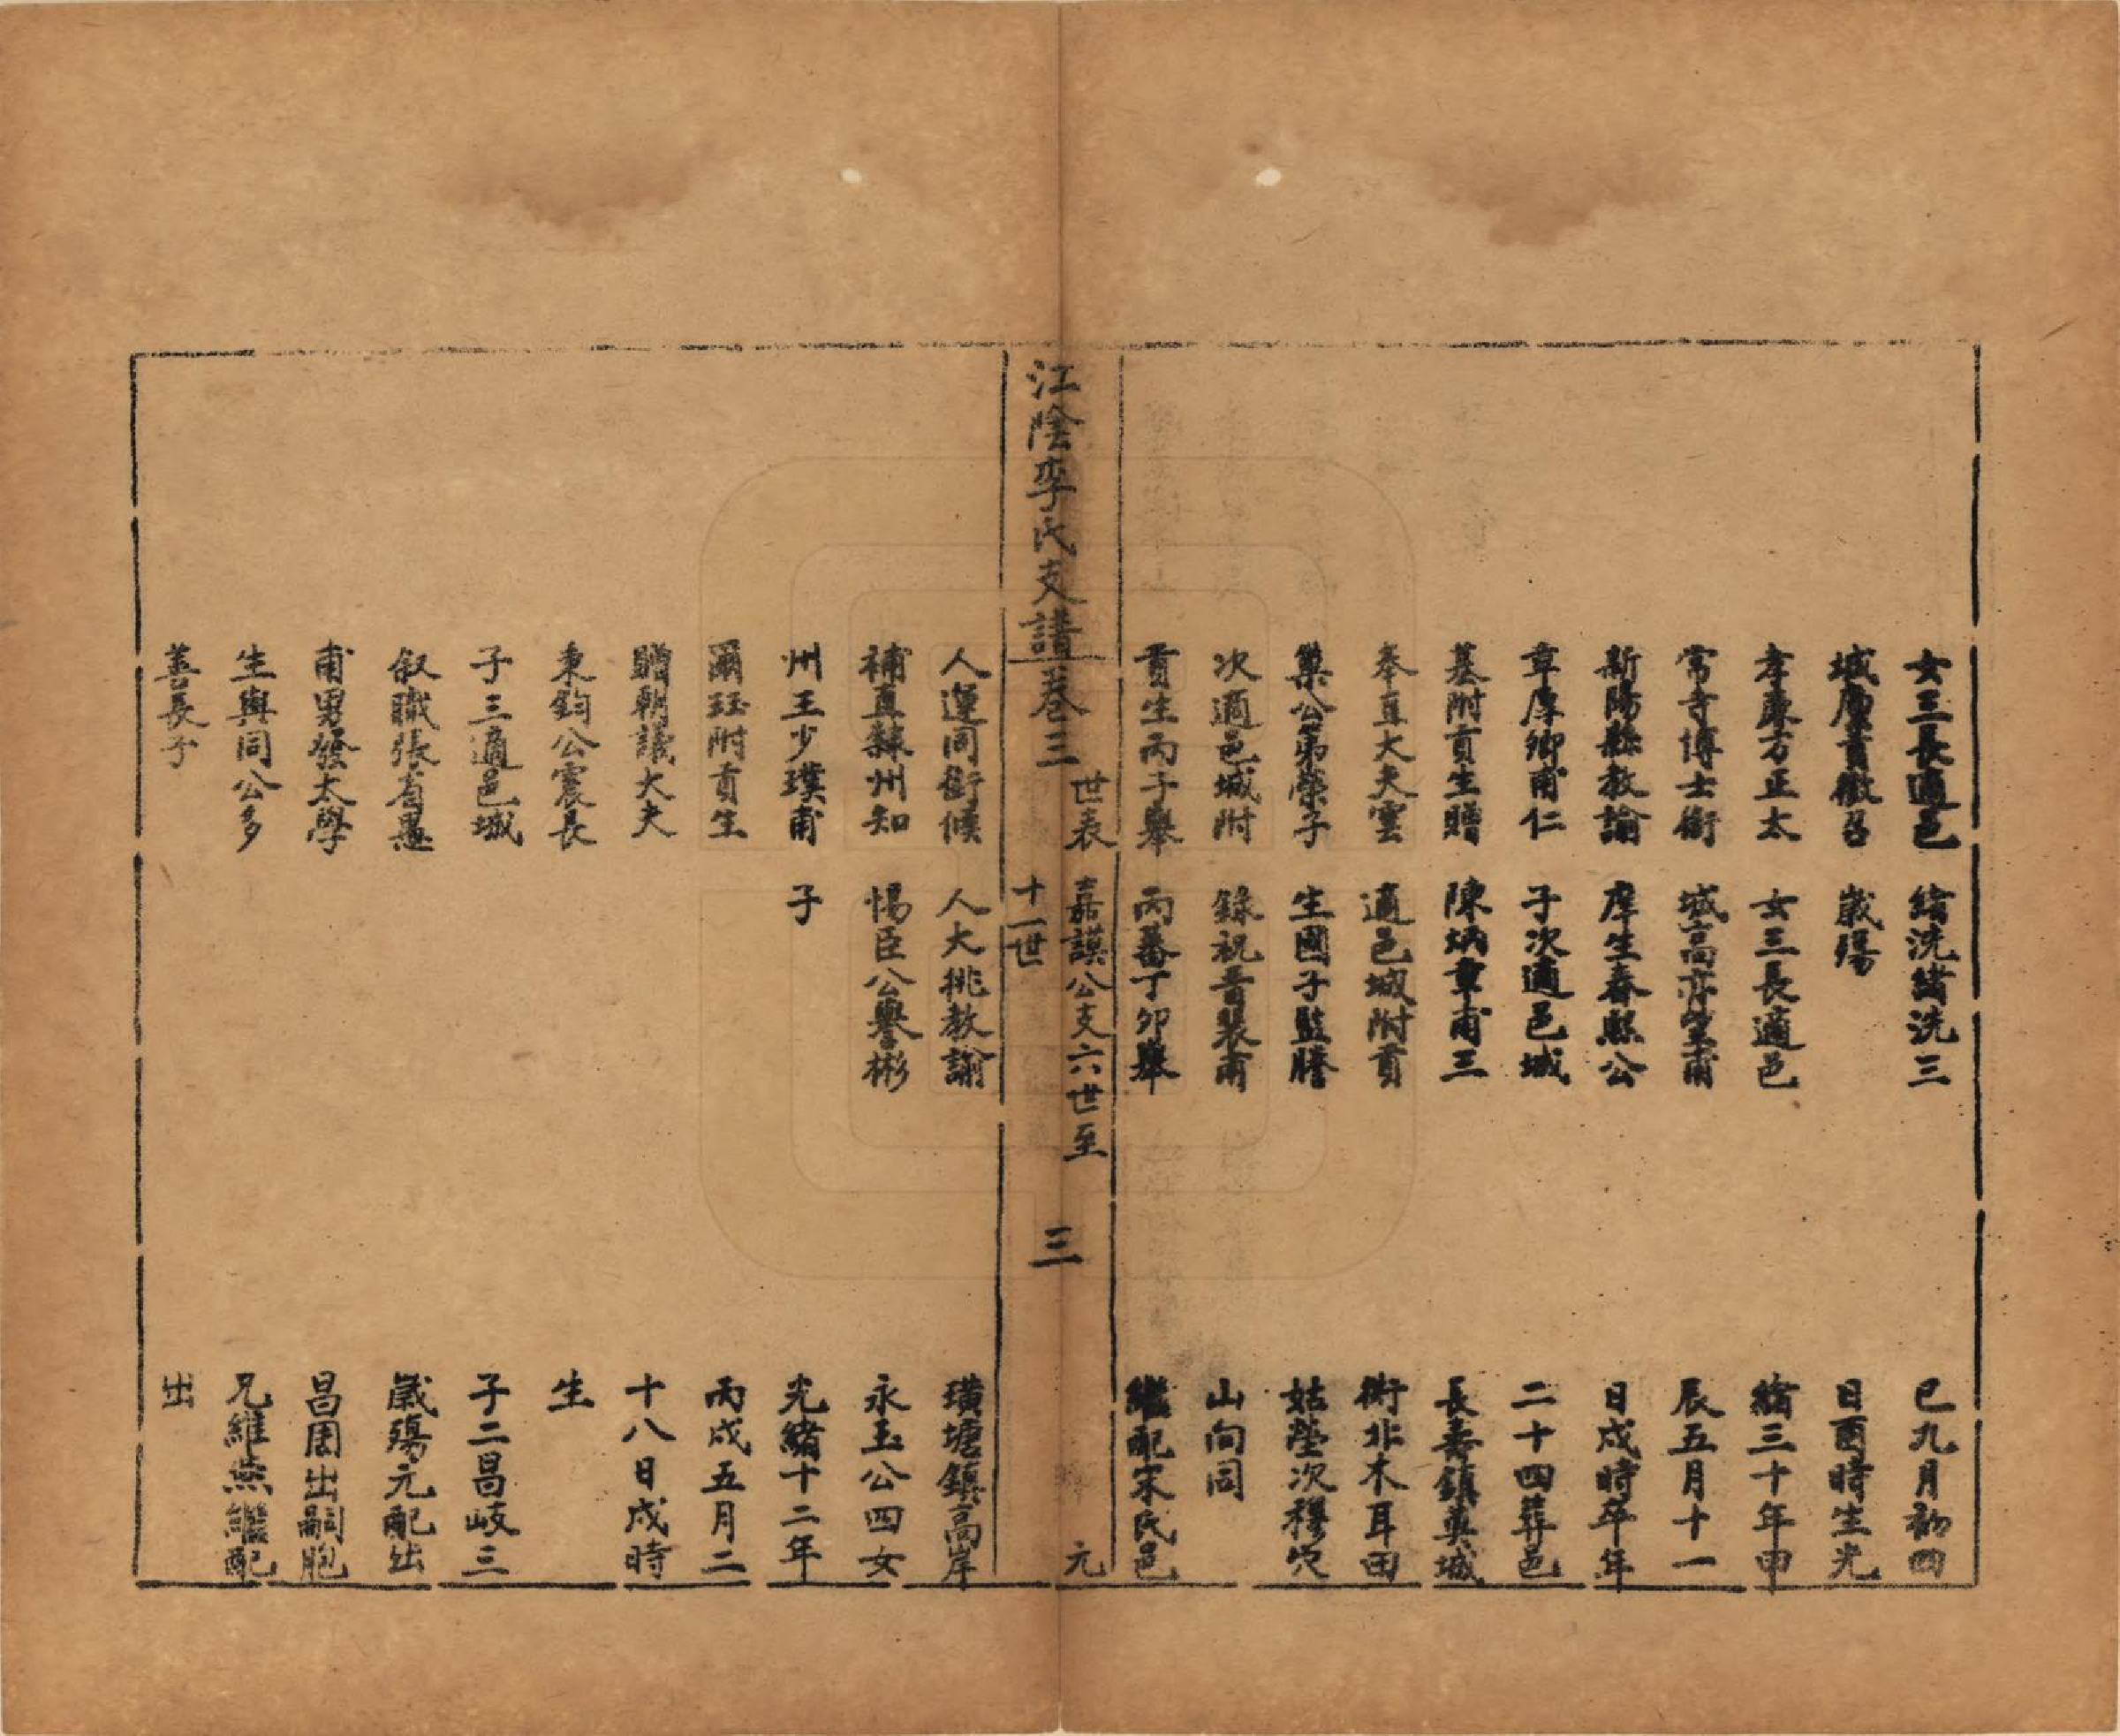 女三長適邑
城廩貢徵召
孝廉方正太
常寺博士銜
新陽縣教諭
章厚卿甫仁
基附貢生贈
奉直大夫雲
巢公弟榮子
次適邑城附
貢生丙子舉
繪洗緒洗三
歲殤
女三長適邑
城高亦笙甫
庠生春熙公
子次適邑城
陳炳章甫三
適邑城附貢
生國子監謄
錄祝晋裴甫
丙蕃丁卯舉
巳九月初四
日酉時生光
緒三十年甲
辰五月十一
日戌時卒年
二十四葬邑
長壽鎮奧城
衖北木耳田
姑塋次穆穴
山向同
繼配宋氏邑
江陰李氏支譜卷三
世表
嘉謨公支六世至
十一世
三
元
人運同銜候
補直隸州知
州王少璞甫
爾珏附貢生
贈朝議大夫
秉鈞公宸長
子三適邑城
叙職張省愚
甫男發太學
生輿同公多
善長子
人大挑教諭
惕臣公譽彬
子
璜塘鎮高岸
永玉公四女
光緒十二年
丙戌五月二
十八日戌時
生
子二昌岐三
歲殤元配出
昌圉出嗣胞
兄維燕繼配
出